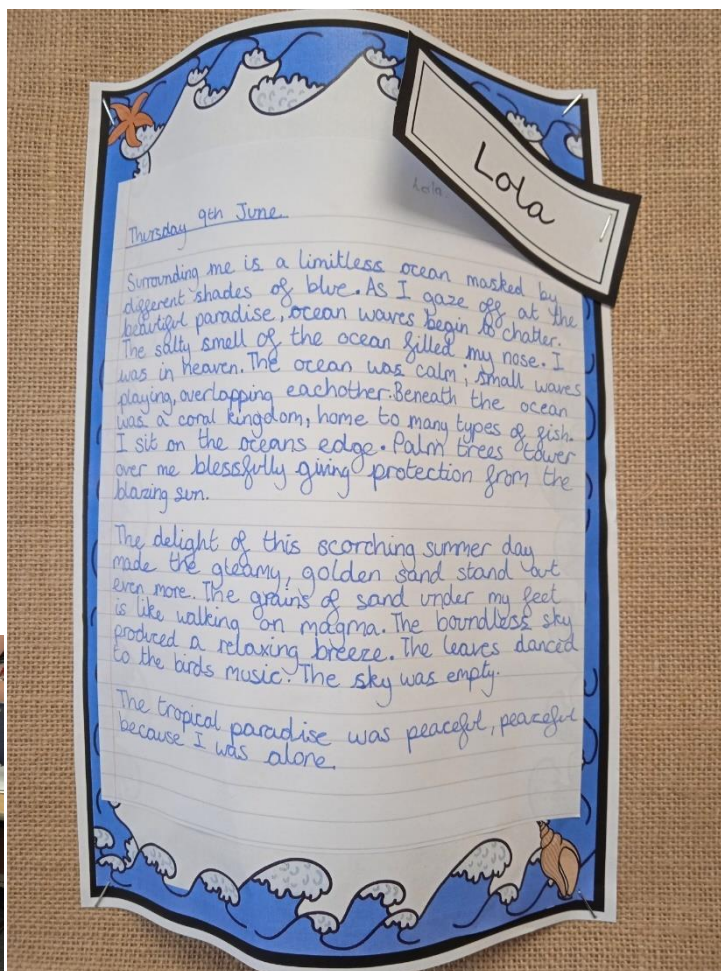 Lola
Lola.
Thursday 9th June
Surrounding me is a limitless ocean masked by
different shades of blue. As I gaze off at the
beautiful paradise, ocean waves begin to chatter.
The salty smell of the ocean filled my nose. I
was in heaven. The ocean was calm; small waves
playing, overlapping eachother. Beneath the ocean
was a coral kingdom, home to many types of fish.
I sit on the oceans edge. Palm trees tower
over me blessfully giving protection from the
blazing sun.
The delight of this scorching summer day
made the gleamy, golden sand stand out
even more. The grains of sand under my feet
is like walking on magma. The boundless sky
produced a relaxing breeze. The leaves danced
to the birds music. The sky was empty.
The tropical paradise was peaceful, peaceful
because I was alone.